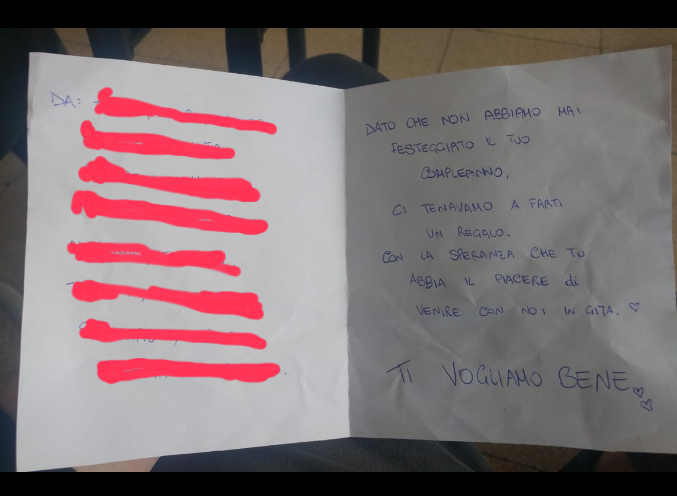 DA:
DATO CHE NON ABBIAMO MAI
FESTEGGIATO IL TUO
COMPLEANNO,
CI TENAVAMO A FARTI
UN REGALO.
CON LA SPERANZA CHE TU
ABBIA IL PIACERE di
VENIRE CON NOI IN GITA. ♡
TI VOGLIAMO BENE ♡♡